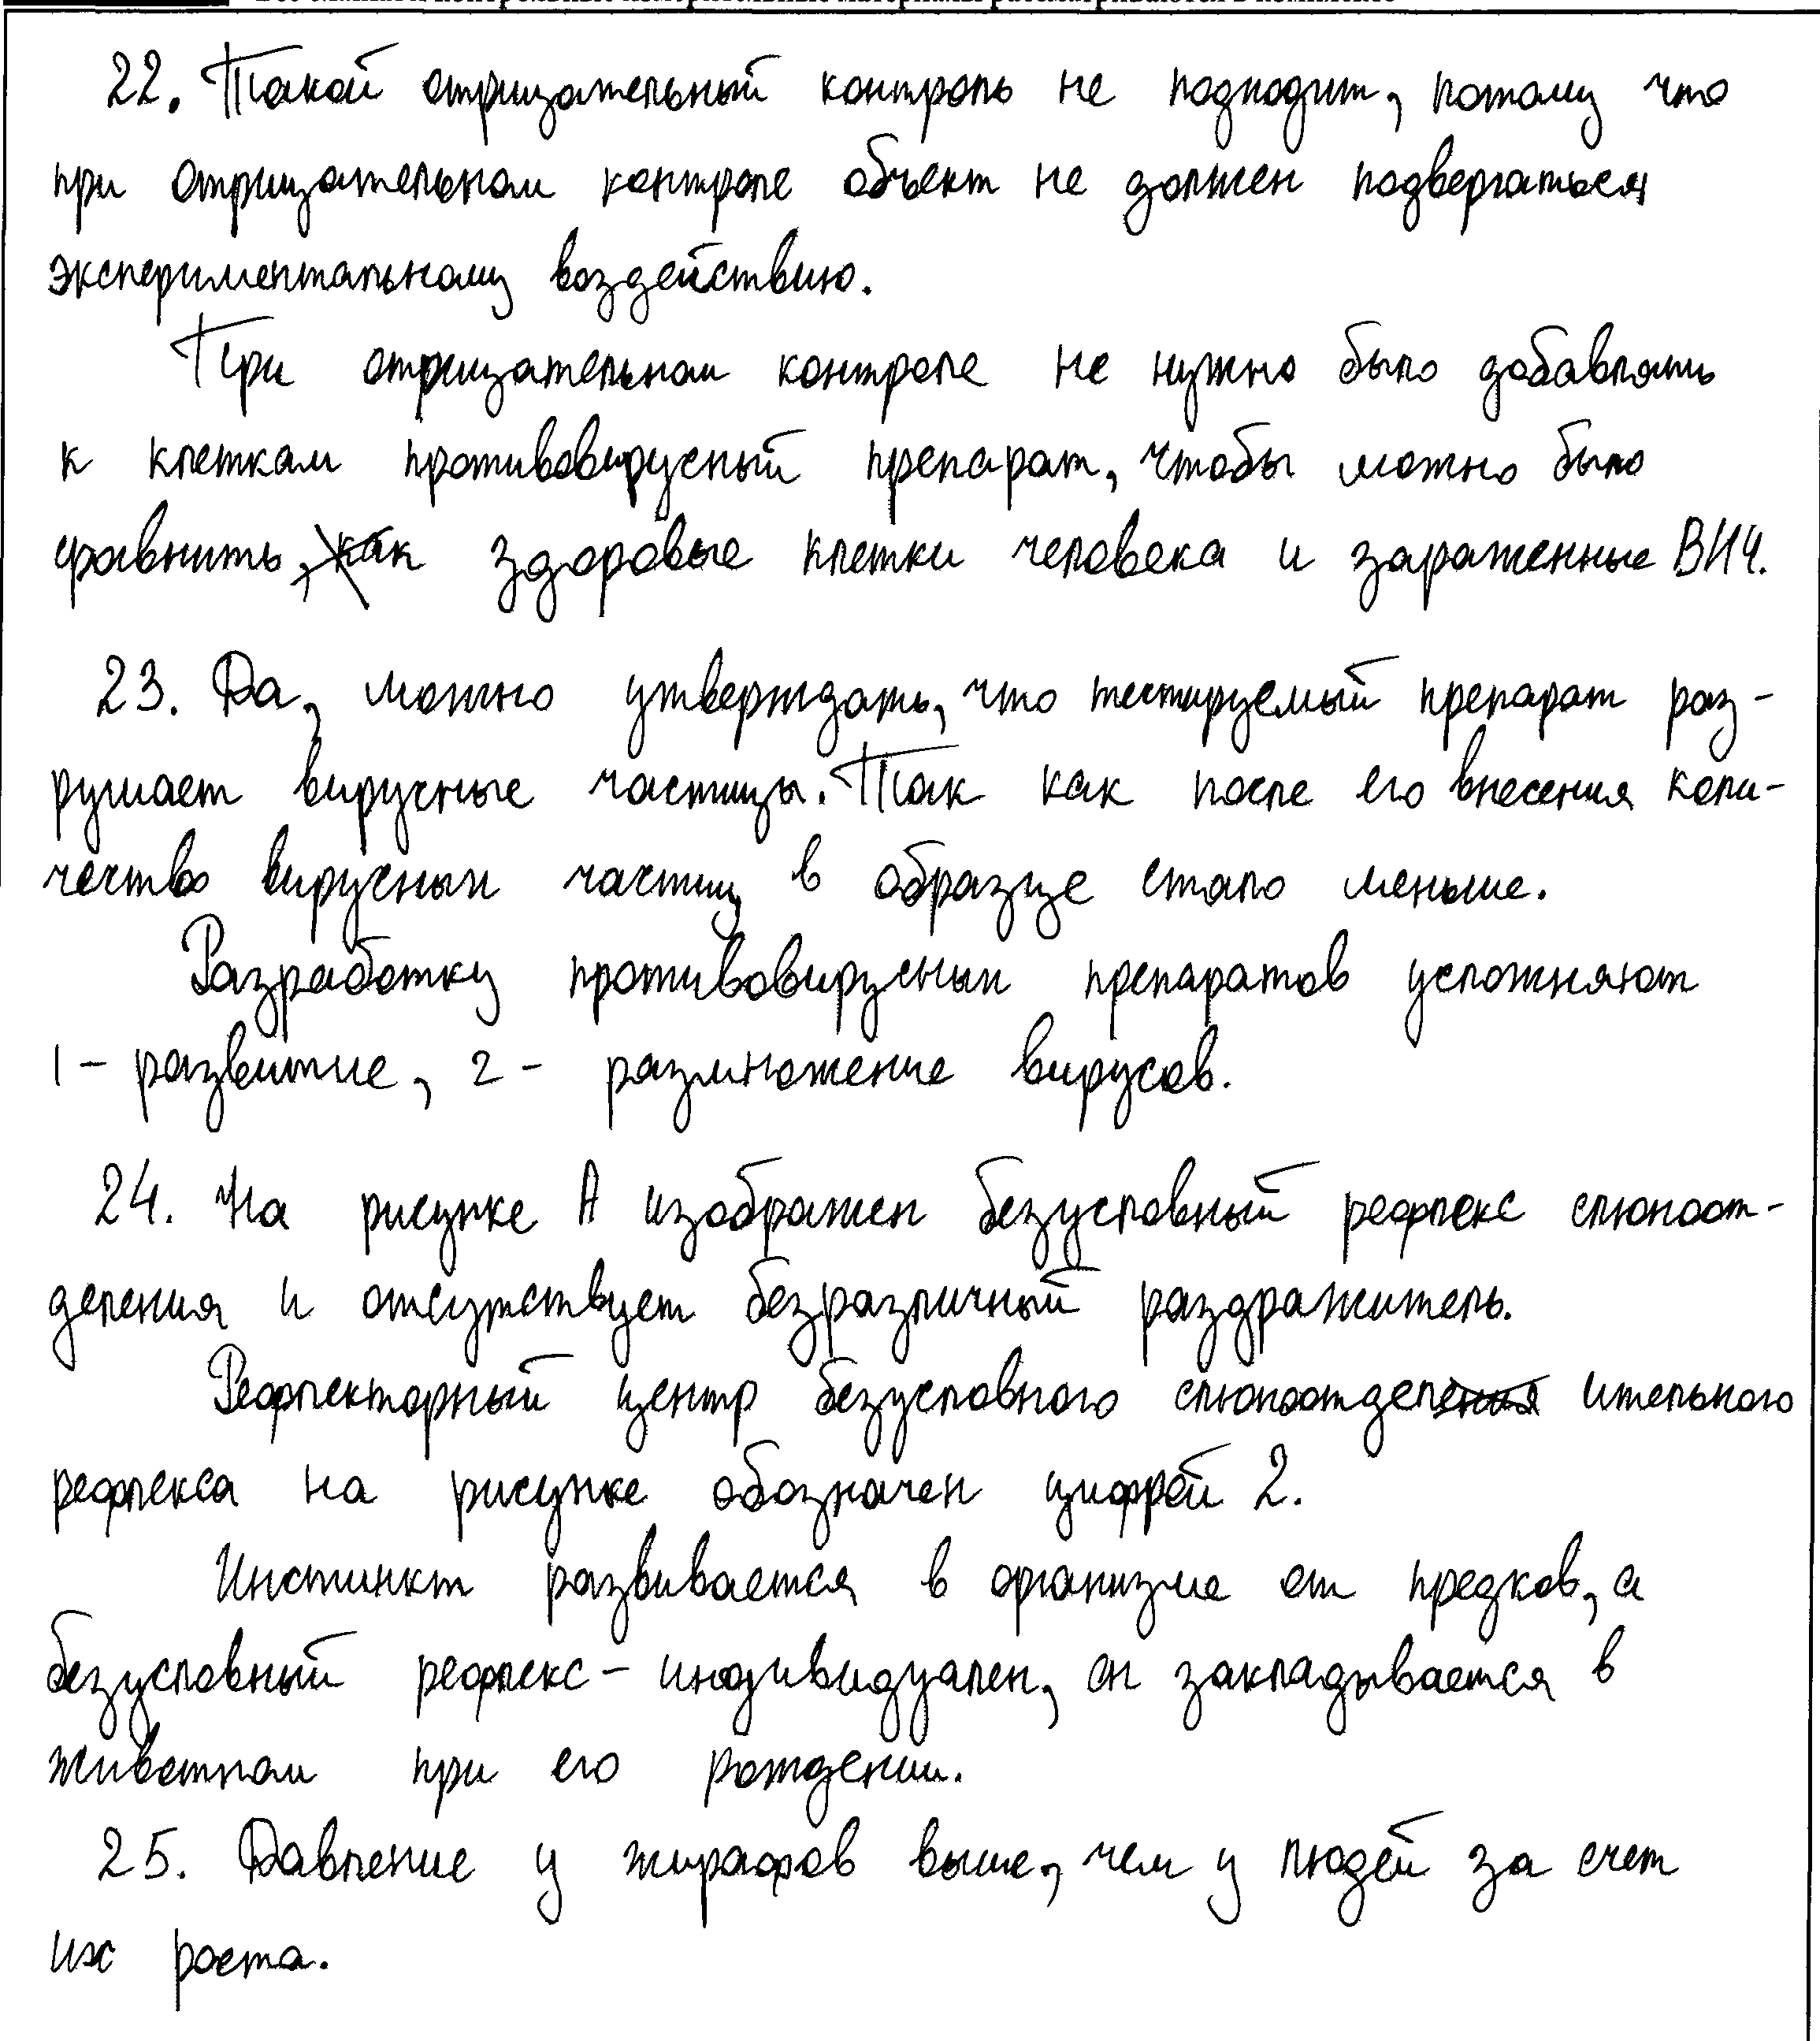 22. Такой отрицательный контроль не подходит, потому что
при отрицательном контроле объект не должен подвергаться
экспериментальному воздействию.
При отрицательном контроле не нужно было добавлять
к клеткам противовирусный препарат, чтобы можно было
сравнить, как здоровые клетки человека и зараженные ВИЧ.
23. Да, можно утверждать, что тестируемый препарат раз-
рушает вирусные частицы. Так как после его внесения коли-
чество вирусных частиц в образце стало меньше.
Разработку противовирусных препаратов усложняют
1 - развитие, 2 - размножение вирусов.
24. На рисунке А изображен безусловный рефлекс слюноот-
деления и отсутствует безразличный раздражитель.
Рефлекторный центр безусловного слюноотделения ительного
рефлекса на рисунке обозначен цифрой 2.
Инстинкт развивается в организме от предков, а
безусловный рефлекс - индивидуален, он закладывается в
животном при его рождении.
25. Давление у жирафов выше, чем у людей за счет
их роста.